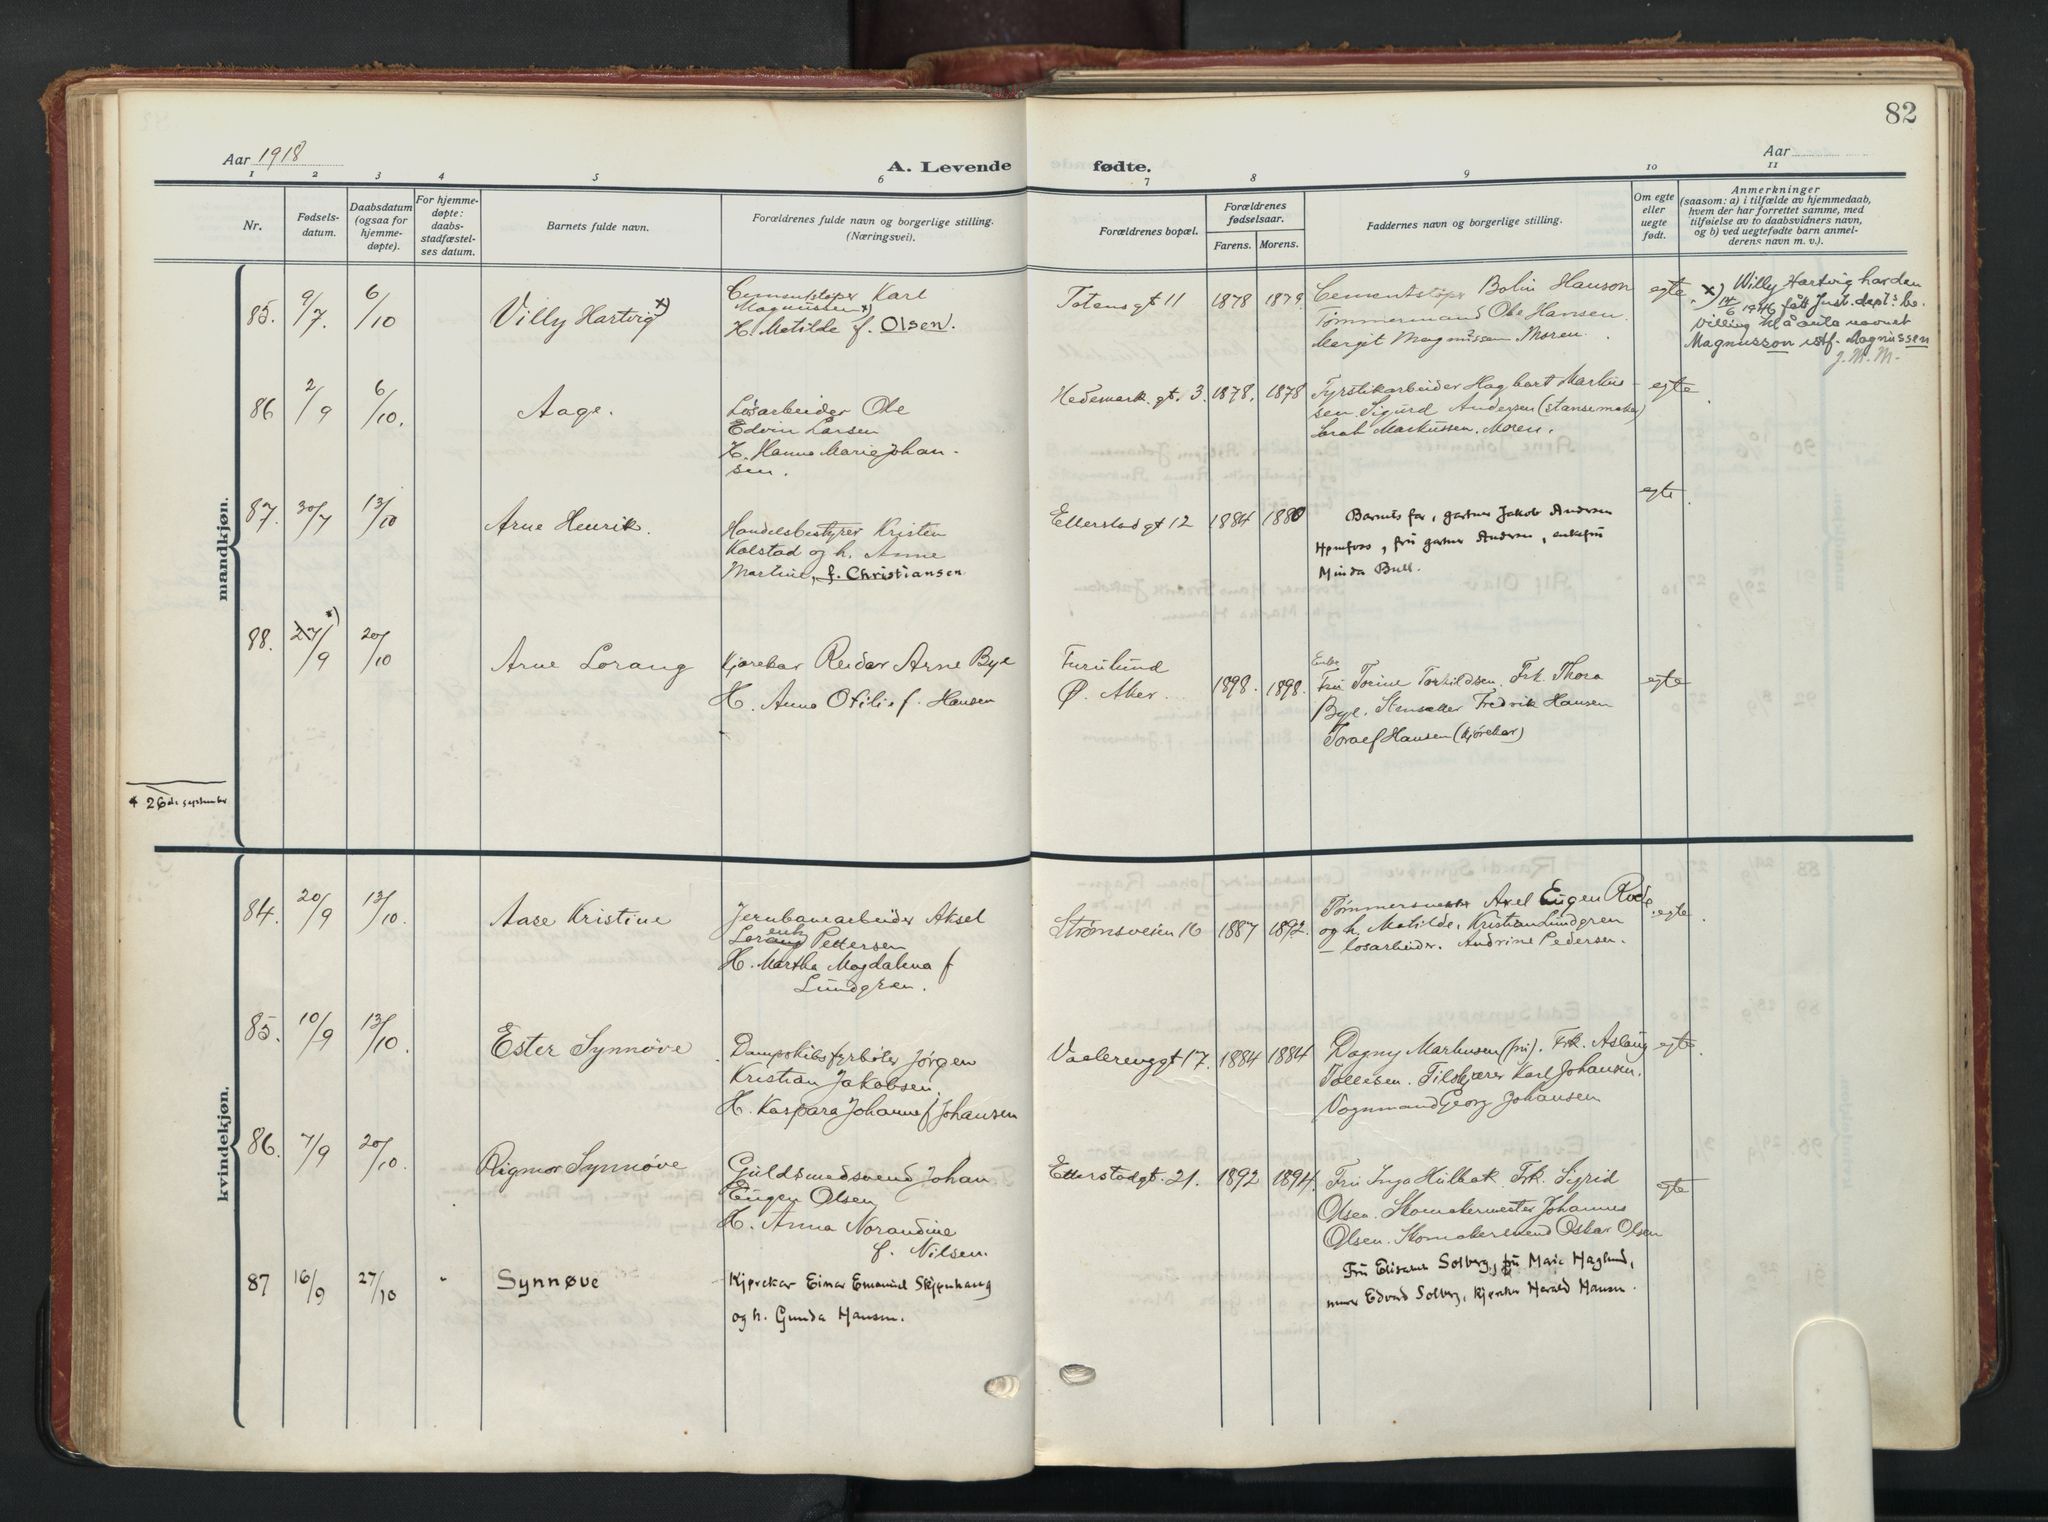 82
Aar 1918
A. Levende fødte.
Aar
1 2 3 4 5 6 7 8 9 10 11
Nr.
Fødsels-
datum.
Daabsdatum
(ogsaa for
hjemme-
døpte).
For hjemme-
døpte:
daabs-
stadfæstel-
ses datum.
Barnets fulde navn.
Forældrenes fulde navn og borgerlige stilling.
(Næringsvei).
Forældrenes bopæl.
Forældrenes
fødselsaar.
Farens. Morens.
Faddernes navn og borgerlige stilling.
Om egte
eller
uegte
født.
Anmerkninger
(saasom: a) i tilfælde av hjemmedaab,
hvem der har forrettet samme, med
tilføielse av to daabsvidners navn,
og b) ved uegtefødte barn anmel-
derens navn m. v.).
mandkjøn.
85. 9/7. 6/10
Willy Hartvig x)
Cementstøper Karl
Magnussen x)
H. Matilde f. Olsen.
Totensgt 11 1878 1879.
Cementstøper Bolin Hanson
Tømmermand Ole Hansen.
Margit Magnussen Moren.
egte.
x) Willy Hartvig har den
14/6 1946 fått Just. dept.s be-
villing til å anta navnet
Magnusson istf. Magnussen
J. M. M.
86 2/9 6/10.
Aage.
Løsarbeider Ole
Edvin Larsen
H. Hanna Marie Johan-
sen.
Hedemark.gt. 3. 1878. 1878
Fyrstikarbeider Hagbart Markus-
sen. Sigurd Andersen (stansemaker)
Sarah Markussen. Moren.
egte
87. 30/7 13/10
Arne Henrik.
Handelsbestyrer Kristen
Kolstad og h. Anne
Martine, f. Christiansen
Etterstadgt 12 1884 1880
Barnets far, gartner Jakob Andersen
Hønefoss, fru gartner Andersen, enkefru
Minda Bull.
egte
88. 27/9 *) 20/10
Arne Lorang
Kjørekar Reidar Arne Bye
H. Anna Otilie f. Hansen
Furulund
Ø. Aker. 1898. 1898.
Enke
Fru Torine Torkildsen. Frk. Thora
Bye. Fredrik Hansen
Toralf Hansen (kjørekar)
egte
* 26de september
kvindekjøn.
84. 20/9 13/10.
Aase Kristine
Jernbanearbeider Aksel
Pettersen
H. Martha Magdalena f
Lundgren.
Strømsveien 16 1887 1892.
Tømmersvend Axel Eugen Rode
og h. Matilde, Kristian Lundgren
– løsarbeider. Andrine Pedersen.
egte.
85. 10/9 13/10.
Ester Synnøve
Dampskibsfyrbøter Jørgen
Kristian Jakobsen.
H. Kaspara Johanne f Johansen
Vaalerenggt 17. 1884 1884
Dagny Markusen (fru). Frk. Aslaug
Tollesen. Tilskjærer Karl Johansen.
Vognmand Georg Johansen
egte.
86. 7/9 20/10.
Rigmor Synnøve
Guldsmedsvend Johan
Eugen Olsen
H. Anna Norandine
f. Nilsen.
Etterstadgt. 21. 1892 1894.
Fru Inga Hulbak. Frk. Sigrid
Olsen. Skomakermester Johannes
Olsen. Skomakersvend Oskar Olsen
egte
87 16/9 27/10 "
Synnøve
Kjørekar Einar Emanuel Skjønhaug
og h. Gunda Hansen.
Fru Elisabet Solberg, fru Marie Haglund,
murer Edvard Solberg, kjørekar Harald Hansen.